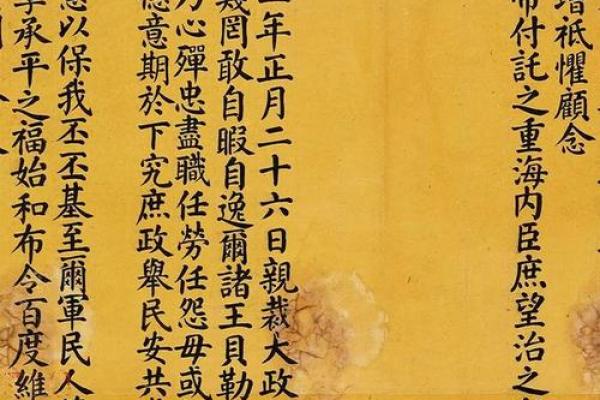 增祗懼顧念
帝付託之重海内臣庶望治之
年正月二十六日親裁大政
幾罔敢自暇自逸爾諸王貝勒
乃心殫忠盡職任勞任怨毋或
意期於下究庶政舉民安共
以保我丕丕基至爾軍民人
承平之福始和布令百度維